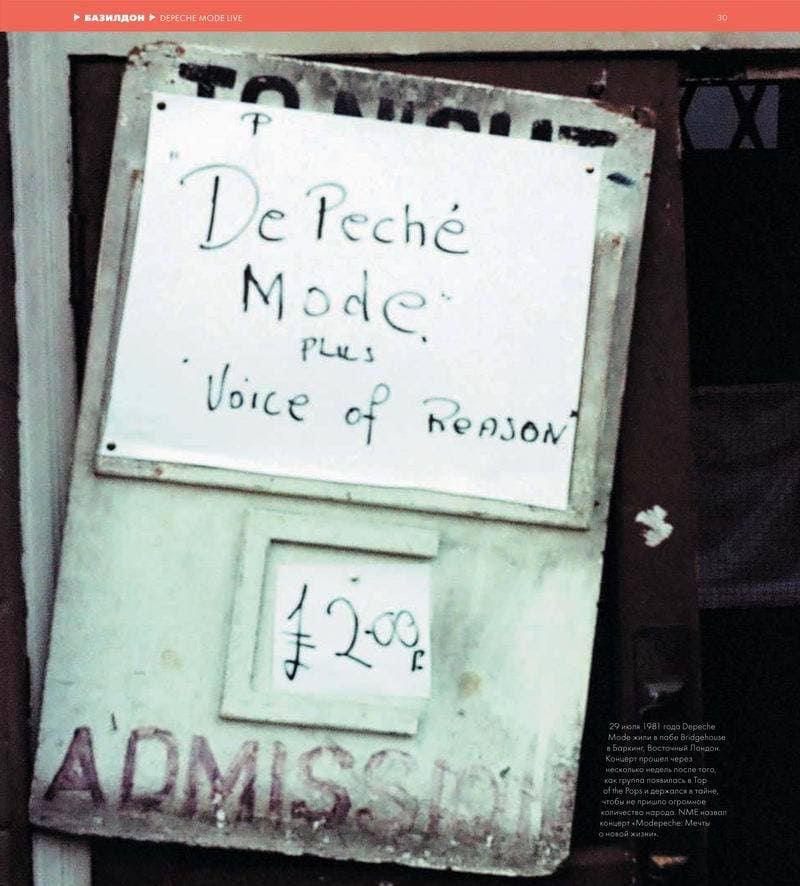 БАЗИЛДОН DEPECHE MODE LIVE 30
TO NIGHT
P
"DePeché
Mode"
PLUS
"Voice of ReASON"
£2.00
ADMISSION
29 июля 1981 года Depeche
Mode жили в пабе Bridgehouse
в Баркинг, Восточный Лондон.
Концерт прошел через
несколько недель после того,
как группа появилась в Top
of the Pops и держался в тайне,
чтобы не пришло огромное
количество народа. NME назвал
концерт «Modepeche: Мечты
о новой жизни».